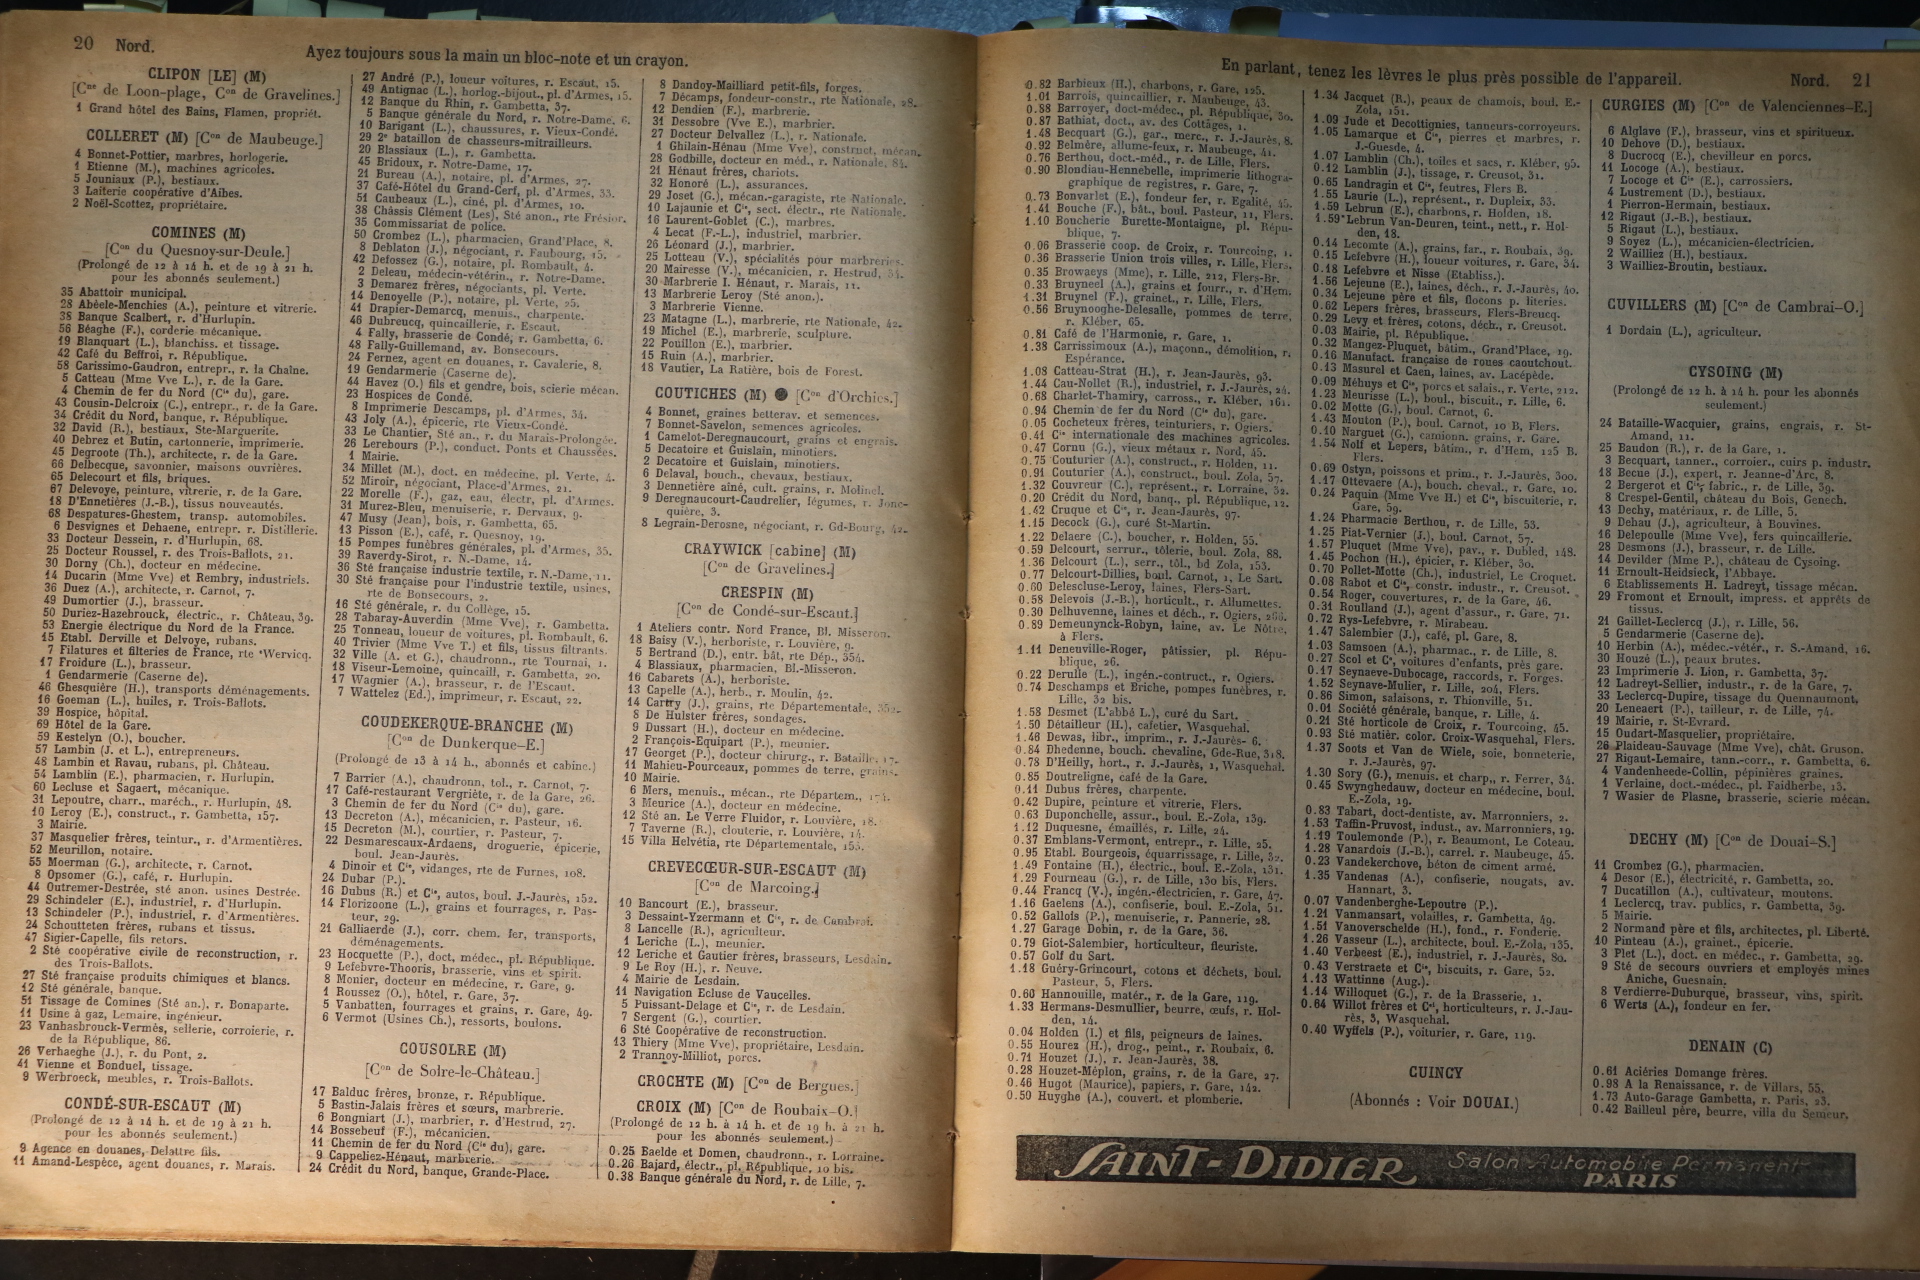 20 Nord.
Ayez toujours sous la main un bloc-note et un crayon.
CLIPON [LE] (M)
[Con de Loon-plage, Con de Gravelines.]
1 Grand hôtel des Bains, Flamen, propriét.
COLLERET (M) [Con de Maubeuge.]
4 Bonnet-Pottier, marbres, horlogerie.
1 Etienne (M.), machines agricoles.
5 Jouniaux (P.), bestiaux.
3 Laiterie coopérative d'Aibes.
2 Noël-Scottez, propriétaire.
COMINES (M)
[Con du Quesnoy-sur-Deule.]
(Prolongé de 12 à 14 h. et de 19 à 21 h.
pour les abonnés seulement.)
35 Abattoir municipal.
28 Abéele-Menchies (A.), peinture et vitrerie.
38 Banque Scalbert, r. d'Hurlupin.
56 Béaghe (F.), corderie mécanique.
19 Blanquart (L.), blanchiss. et tissage.
42 Café du Beffroi, r. République.
58 Carissimo-Gaudron, entrepr., r. la Chaîne.
5 Catteau (Mme Vve L.), r. de la Gare.
4 Chemin de fer du Nord (Cie du), gare.
43 Cousin-Delcroix (C.), entrepr., r. de la Gare.
34 Crédit du Nord, banque, r. République.
32 David (R.), bestiaux, Ste-Marguerite.
40 Debrez et Butin, cartonnerie, imprimerie.
45 Degroote (Th.), architecte, r. de la Gare.
66 Delbecque, savonnier, maisons ouvrières.
65 Delecourt et fils, briques.
67 Delevoye, peinture, vitrerie, r. de la Gare.
18 D'Ennetières (J.-B.), tissus nouveautés.
68 Despatures-Ghestem, transp. automobiles.
6 Desvignes et Dehaene, entrepr. r. Distillerie.
33 Docteur Dessein, r. d'Hurlupin, 68.
25 Docteur Roussel, r. des Trois-Ballots, 21.
30 Dorny (Ch.), docteur en médecine.
14 Ducarin (Mme Vve) et Rembry, industriels.
36 Duez (A.), architecte, r. Carnot, 7.
49 Dumortier (J.), brasseur.
50 Duriez-Hazebrouck, électric., r. Château, 39.
53 Energie électrique du Nord de la France.
15 Etabl. Derville et Delvoye, rubans.
7 Filatures et filteries de France, rte Wervicq.
17 Froidure (L.), brasseur.
1 Gendarmerie (Caserne de).
46 Ghesquière (H.), transports déménagements.
16 Goeman (L.), huiles, r. Trois-Ballots.
39 Hospice, hôpital.
69 Hôtel de la Gare.
59 Kestelyn (O.), boucher.
57 Lambin (J. et L.), entrepreneurs.
48 Lambin et Ravau, rubans, pl. Château.
54 Lamblin (E.), pharmacien, r. Hurlupin.
60 Lecluse et Sagaert, mécanique.
31 Lepoutre, charr., maréch., r. Hurlupin, 48.
10 Leroy (E.), construct., r. Gambetta, 157.
3 Mairie.
37 Masquelier frères, teintur., r. d'Armentières.
52 Meurillon, notaire.
55 Moerman (G.), architecte, r. Carnot.
8 Opsomer (G.), café, r. Hurlupin.
44 Outremer-Destrée, sté anon. usines Destrée.
29 Schindeler (E.), industriel, r. d'Hurlupin.
13 Schindeler (P.), industriel, r. d'Armentières.
24 Schoutteten frères, rubans et tissus.
47 Sigier-Capelle, fils retors.
2 Sté coopérative civile de reconstruction, r.
des Trois-Ballots.
27 Sté française produits chimiques et blancs.
12 Sté générale, banque.
51 Tissage de Comines (Sté an.), r. Bonaparte.
11 Usine à gaz, Lemaire, ingénieur.
23 Vanhasbrouck-Vermès, sellerie, corroierie, r.
de la République, 86.
26 Verhaeghe (J.), r. du Pont, 2.
41 Vienne et Bonduel, tissage.
9 Werbroeck, meubles, r. Trois-Ballots.
CONDÉ-SUR-ESCAUT (M)
(Prolongé de 12 à 14 h. et de 19 à 21 h.
pour les abonnés seulement.)
9 Agence en douanes, Delattre fils.
11 Amand-Lespèce, agent douanes, r. Marais.
27 André (P.), loueur voitures, r. Escaut, 15.
49 Antignac (L.), horlog.-bijout., pl. d'Armes, 15.
12 Banque du Rhin, r. Gambetta, 37.
5 Banque générale du Nord, r. Notre-Dame, 6.
10 Barigant (L.), chaussures, r. Vieux-Condé.
29 2e bataillon de chasseurs-mitrailleurs.
20 Blassiaux (L.), r. Gambetta.
45 Bridoux, r. Notre-Dame, 17.
21 Bureau (A.), notaire, pl. d'Armes, 27.
37 Café-Hôtel du Grand-Cerf, pl. d'Armes, 33.
51 Caubeaux (L.), ciné, pl. d'Armes, 10.
38 Châssis Clément (Les), Sté anon., rte Frésior.
35 Commissariat de police.
50 Crombez (L.), pharmacien, Grand'Place, 8.
8 Deblaton (J.), négociant, r. Faubourg, 15.
42 Defossez (G.), notaire, pl. Rombault, 4.
2 Deleau, médecin-vétérin., r. Notre-Dame.
3 Demarez frères, négociants, pl. Verte.
14 Denoyelle (P.), notaire, pl. Verte, 25.
41 Drapier-Demarcq, menuis., charpente.
46 Dubreucq, quincaillerie, r. Escaut.
4 Fally, brasserie de Condé, r. Gambetta, 6.
48 Fally-Guillemand, av. Bonsecours.
24 Fernez, agent en douanes, r. Cavalerie, 8.
19 Gendarmerie (Caserne de).
44 Havez (O.) fils et gendre, bois, scierie mécan.
23 Hospices de Condé.
8 Imprimerie Descamps, pl. d'Armes, 34.
43 Joly (A.), épicerie, rte Vieux-Condé.
33 Le Chantier, Sté an., r. du Marais-Prolongée.
26 Lerebours (P.), conduct. Ponts et Chaussées.
1 Mairie.
34 Millet (M.), doct. en médecine, pl. Verte, 4.
52 Miroir, négociant, Place-d'Armes, 21.
22 Morelle (F.), gaz, eau, électr, pl. d'Armes.
31 Murez-Bleu, menuiserie, r. Dervaux, 9.
47 Musy (Jean), bois, r. Gambetta, 65.
13 Pisson (E.), café, r. Quesnoy, 19.
15 Pompes funèbres générales, pl. d'Armes, 35.
39 Raverdy-Sirot, r. N.-Dame, 14.
36 Sté française industrie textile, r. N.-Dame, 11.
30 Sté française pour l'industrie textile, usines,
rte de Bonsecours, 2.
16 Sté générale, r. du Collège, 15.
28 Tabaray-Auverdin (Mme Vve), r. Gambetta.
25 Tonneau, loueur de voitures, pl. Rombault, 6.
40 Trivier (Mme Vve T.) et fils, tissus filtrants.
32 Ville (A. et G.), chaudronn., rte Tournai, 1.
18 Viseur-Lemoine, quincaill., r. Gambetta, 20.
17 Wagnier (A.), brasseur, r. de l'Escaut.
7 Wattelez (Ed.), imprimeur, r. Escaut, 22.
COUDEKERQUE-BRANCHE (M)
[Con de Dunkerque-E.]
(Prolongé de 13 à 14 h., abonnés et cabine.)
7 Barrier (A.), chaudronn, tol., r. Carnot, 7.
17 Café-restaurant Vergriète, r. de la Gare, 26.
3 Chemin de fer du Nord (Cie du), gare.
13 Decreton (A.), mécanicien, r. Pasteur, 16.
15 Decreton (M.), courtier, r. Pasteur, 7.
22 Desmarescaux-Ardaens, droguerie, épicerie,
boul. Jean-Jaurès.
4 Dinoir et Cie, vidanges, rte de Furnes, 108.
24 Dubar (P.).
16 Dubus (R.) et Cie, autos, boul. J.-Jaurès, 152.
14 Florizoone (L.), grains et fourrages, r. Pas-
teur, 29.
21 Galliaerde (J.), corr. chem. fer, transports,
déménagements.
23 Hocquette (P.), doct, médec., pl. République.
9 Lefebvre-Thooris, brasserie, vins et spirit.
8 Monier, docteur en médecine, r. Gare, 9.
1 Roussez (O.), hôtel, r. Gare, 37.
5 Vanbatten, fourrages et grains, r. Gare, 49.
6 Vermot (Usines Ch.), ressorts, boulons.
COUSOLRE (M)
[Con de Solre-le-Château.]
17 Balduc frères, bronze, r. République.
5 Bastin-Jalais frères et sœurs, marbrerie.
6 Bongniart (J.), marbrier, r. d'Hestrud, 27.
14 Bossebeuf (F.), mécanicien.
11 Chemin de fer du Nord (Cie du), gare.
9 Cappeliez-Hénaut, marbrerie.
24 Crédit du Nord, banque, Grande-Place.
8 Dandoy-Mailliard petit-fils, forges.
7 Décamps, fondeur-constr., rte Nationale, 28.
12 Dendien (F.), marbrerie.
31 Dessobre (Vve E.), marbrier.
27 Docteur Delvallez (L.), r. Nationale.
1 Ghilain-Hénau (Mme Vve), construct, mécan.
28 Godbille, docteur en méd., r. Nationale, 84.
21 Hénaut frères, chariots.
32 Honoré (L.), assurances.
29 Joset (G.), mécan.-garagiste, rte Nationale.
10 Lajaunie et Cie, sect. électr., rte Nationale.
16 Laurent-Goblet (C.), marbres.
4 Lecat (F.-L.), industriel, marbrier.
26 Léonard (J.), marbrier.
25 Lotteau (V.), spécialités pour marbreries.
20 Mairesse (V.), mécanicien, r. Hestrud, 34.
30 Marbrerie I. Hénaut, r. Marais, 11.
13 Marbrerie Leroy (Sté anon.).
3 Marbrerie Vienne.
23 Matagne (L.), marbrerie, rte Nationale, 42.
19 Michel (E.), marbrerie, sculpture.
22 Pouillon (E.), marbrier.
15 Ruin (A.), marbrier.
18 Vautier, La Ratière, bois de Forest.
COUTICHES (M) ● [Con d'Orchies.]
4 Bonnet, graines betterav. et semences.
7 Bonnet-Savelon, semences agricoles.
1 Camelot-Deregnaucourt, grains et engrais.
5 Decatoire et Guislain, minotiers.
2 Decatoire et Guislain, minotiers.
6 Delaval, bouch., chevaux, bestiaux.
3 Dennetière aîné, cult. grains, r. Molinel.
9 Deregnaucourt-Caudrelier, légumes, r. Jonc-
quière, 3.
8 Legrain-Derosne, négociant, r. Gd-Bourg, 42.
CRAYWICK [cabine] (M)
[Con de Gravelines.]
CRESPIN (M)
[Con de Condé-sur-Escaut.]
1 Ateliers contr. Nord France, Bl. Misseron.
18 Baisy (V.), herboriste, r. Louvière, 9.
5 Bertrand (D.), entr. bât, rte Dép., 354.
4 Blassiaux, pharmacien, Bl.-Misseron.
16 Cabarets (A.), herboriste.
13 Capelle (A.), herb., r. Moulin, 42.
14 Cartry (J.), grains, rte Départementale, 352.
8 De Hulster frères, sondages.
9 Dussart (H.), docteur en médecine.
2 François-Equipart (P.), meunier.
17 Georget (P.), docteur chirurg., r. Bataille, 17.
11 Mahieu-Pourceaux, pommes de terre, grains.
10 Mairie.
6 Mers, menuis., mécan., rte Départem., 174.
3 Meurice (A.), docteur en médecine.
12 Sté an. Le Verre Fluidor, r. Louvière, 18.
7 Taverne (R.), clouterie, r. Louvière, 14.
15 Villa Helvétia, rte Départementale, 153.
CREVECŒUR-SUR-ESCAUT (M)
[Con de Marcoing.]
10 Bancourt (E.), brasseur.
3 Dessaint-Yzermann et Cie, r. de Cambrai.
8 Lancelle (R.), agriculteur.
1 Leriche (L.), meunier.
12 Leriche et Gautier frères, brasseurs, Lesdain.
9 Le Roy (H.), r. Neuve.
4 Mairie de Lesdain.
11 Navigation Ecluse de Vaucelles.
5 Puissant-Delage et Cie, r. de Lesdain.
7 Sergent (G.), courtier.
6 Sté Coopérative de reconstruction.
13 Thiery (Mme Vve), propriétaire, Lesdain.
2 Trannoy-Milliot, porcs.
CROCHTE (M) [Con de Bergues.]
CROIX (M) [Con de Roubaix-O.]
(Prolongé de 12 h. à 14 h. et de 19 h. à 21 h.
pour les abonnés seulement.)
0.25 Baelde et Domen, chaudronn., r. Lorraine.
0.26 Bajard, électr., pl. République, 10 bis.
0.38 Banque générale du Nord, r. de Lille, 7.
En parlant, tenez les lèvres le plus près possible de l'appareil.
Nord. 21
0.82 Barbieux (H.), charbons, r. Gare, 125.
1.01 Barrois, quincaillier, r. Maubeuge, 43.
0.88 Barroyer, doct-médec., pl. République, 30.
0.87 Bathiat, doct., av. des Cottages, 1.
1.48 Becquart (G.), gar., merc., r. J.-Jaurès, 8.
0.92 Belmère, allume-feux, r. Maubeuge, 41.
0.76 Berthou, doct.-méd., r. de Lille, Flers.
0.90 Blondiau-Hennebelle, imprimerie lithogra-
graphique de registres, r. Gare, 7.
0.73 Bonvarlet (E.), fondeur fer, r. Egalité, 45.
1.41 Bouche (F.), bât., boul. Pasteur, 11, Flers.
1.10 Boucherie Burette-Montaigne, pl. Répu-
blique, 7.
0.06 Brasserie coop. de Croix, r. Tourcoing, 1.
0.36 Brasserie Union trois villes, r. Lille, Flers.
0.35 Browaeys (Mme), r. Lille, 212, Flers-Br.
0.33 Bruyneel (A.), grains et fourr., r. d'Hem.
1.31 Bruynel (F.), grainet., r. Lille, Flers.
0.56 Bruynooghe-Delesalle, pommes de terre,
r. Kléber, 65.
0.81 Café de l'Harmonie, r. Gare, 1.
1.38 Carrissimoux (A.), maçonn., démolition, r.
Espérance.
1.08 Catteau-Strat (H.), r. Jean-Jaurès, 93.
1.44 Cau-Nollet (R.), industriel, r. J.-Jaurès, 24.
0.68 Charlet-Thamiry, carross., r. Kléber, 161.
0.94 Chemin de fer du Nord (Cie du), gare.
0.05 Cocheteux frères, teinturiers, r. Ogiers.
0.41 Cie internationale des machines agricoles.
0.47 Cornu (G.), vieux métaux r. Nord, 45.
0.75 Couturier (A.), construct., r. Holden, 11.
0.91 Couturier (A.), construct., boul. Zola, 57.
1.32 Couvreur (C.), représent., r. Lorraine, 32.
0.20 Crédit du Nord, banq., pl. République, 12.
1.42 Cruque et Cie, r. Jean-Jaurès, 97.
1.15 Decock (G.), curé St-Martin.
1.22 Delaere (C.), boucher, r. Holden, 55.
0.59 Delcourt, serrur., tôlerie, boul. Zola, 88.
1.36 Delcourt (L.), serr., tôl., bd Zola, 153.
0.77 Delcourt-Dillies, boul. Carnot, 1, Le Sart.
0.60 Delescluse-Leroy, laines, Flers-Sart.
0.58 Delevois (J.-B.), horticult., r. Allumettes.
0.30 Delhuvenne, laines et déch., r. Ogiers, 266.
0.89 Demeunynck-Robyn, laine, av. Le Nôtre,
à Flers.
1.11 Deneuville-Roger, pâtissier, pl. Répu-
blique, 26.
0.22 Derulle (L.), ingén.-contruct., r. Ogiers.
0.74 Deschamps et Briche, pompes funèbres, r.
Lille, 32 bis.
1.58 Desmet (L'abbé L.), curé du Sart.
1.50 Détailleur (H.), cafetier, Wasquehal.
1.46 Dewas, libr., imprim., r. J.-Jaurès- 6.
0.84 Dhedenne, bouch. chevaline, Gde-Rue, 318.
0.78 D'Heilly, hort., r. J.-Jaurès, 1, Wasquehal.
0.85 Doutreligne, café de la Gare.
0.11 Dubus frères, charpente.
0.42 Dupire, peinture et vitrerie, Flers.
0.63 Duponchelle, assur., boul. E.-Zola, 139.
1.12 Duquesne, émaillés, r. Lille, 24.
0.37 Emblans-Vermont, entrepr., r. Lille, 25.
0.95 Etabl. Bourgeois, équarrissage, r. Lille, 32.
1.49 Fontaine (H.), électric., boul. E.-Zola, 131.
1.29 Fourneau (G.), r. de Lille, 130 bis, Flers.
0.44 Francq (V.), ingén.-électricien, r. Gare, 47.
1.16 Gaelens (A.), confiserie, boul. E.-Zola, 51.
0.52 Gallois (P.), menuiserie, r. Pannerie, 28.
1.27 Garage Dobin, r. de la Gare, 36.
0.79 Giot-Salembier, horticulteur, fleuriste.
0.57 Golf du Sart.
1.18 Guéry-Grincourt, cotons et déchets, boul.
Pasteur, 5, Flers.
0.60 Hannouille, matér., r. de la Gare, 119.
1.33 Hermans-Desmullier, beurre, œufs, r. Hol-
den, 14.
0.04 Holden (I.) et fils, peigneurs de laines.
0.55 Hourez (H.), drog., peint., r. Roubaix, 6.
0.71 Houzet (J.), r. Jean-Jaurès, 38.
0.28 Houzet-Méplon, grains, r. de la Gare, 27.
0.46 Hugot (Maurice), papiers, r. Gare, 142.
0.50 Huyghe (A.), couvert. et plomberie.
1.34 Jacquet (R.), peaux de chamois, boul. E.-
Zola, 151.
1.09 Jude et Decottignies, tanneurs-corroyeurs.
1.05 Lamarque et Cie, pierres et marbres, r.
J.-Guesde, 4.
1.07 Lamblin (Ch.), toiles et sacs, r. Kléber, 95.
0.12 Lamblin (J.), tissage, r. Creusot, 31.
0.65 Landragin et Cie, feutres, Flers B.
1.55 Laurie (L.), représent., r. Dupleix, 33.
1.59 Lebrun (E.), charbons, r. Holden, 18.
1.59 Lebrun Van-Deuren, teint., nett., r. Hol-
den, 18.
0.14 Lecomte (A.), grains, far., r. Roubaix, 39.
0.15 Lefebvre (H.), loueur voitures, r. Gare, 34.
0.18 Lefebvre et Nisse (Etabliss.).
1.56 Lejeune (E.), laines, déch., r. J.-Jaurès, 40.
0.34 Lejeune père et fils, flocons p. literies.
0.62 Lepers frères, brasseurs, Flers-Breucq.
0.29 Levy et frères, cotons, déch., r. Creusot.
0.03 Mairie, pl. République.
0.32 Mangez-Pluquet, bâtim., Grand'Place, 19.
0.16 Manufact. française de roues caoutchout.
0.13 Masurel et Caen, laines, av. Lacépède.
0.09 Méhuys et Cie, porcs et salais., r. Verte, 212.
1.23 Meurisse (L.), boul., biscuit., r. Lille, 6.
0.02 Motte (G.), boul. Carnot, 6.
1.43 Mouton (P.), boul. Carnot, 10 B, Flers.
0.10 Narguet (G.), camionn. grains, r. Gare.
1.54 Nolf et Lepers, bâtim., r. d'Hem, 125 B.
Flers.
0.69 Ostyn, poissons et prim., r. J.-Jaurès, 300.
1.17 Ottevaere (A.), bouch. cheval., r. Gare, 10.
0.24 Paquin (Mme Vve H.) et Cie, biscuiterie, r.
Gare, 59.
1.24 Pharmacie Berthou, r. de Lille, 53.
1.25 Piat-Vernier (J.), boul. Carnot, 57.
1.57 Pluquet (Mme Vve), pav., r. Dubled, 148.
1.45 Pochon (H.), épicier, r. Kléber, 30.
0.70 Pollet-Motte (Ch.), industriel, Le Croquet.
0.08 Rabot et Cie, constr. industr., r. Creusot.
0.54 Roger, couvertures, r. de la Gare, 46.
0.31 Roulland (J.), agent d'assur., r. Gare, 71.
0.72 Rys-Lefebvre, r. Mirabeau.
1.47 Salembier (J.), café, pl. Gare, 8.
1.03 Samsoen (A.), pharmac., r. de Lille, 8.
0.27 Scol et Cie, voitures d'enfants, près gare.
0.17 Seynaeve-Dubocage, raccords, r. Forges.
1.52 Seynave-Mulier, r. Lille, 204, Flers.
0.86 Simon, salaisons, r. Thionville, 51.
0.01 Société générale, banque, r. Lille, 4.
0.21 Sté horticole de Croix, r. Tourcoing, 45.
0.93 Sté matièr. color. Croix-Wasquehal, Flers.
1.37 Soots et Van de Wiele, soie, bonneterie,
r. J.-Jaurès, 97.
1.30 Sory (G.), menuis. et charp., r. Ferrer, 34.
0.45 Swynghedauw, docteur en médecine, boul.
E.-Zola, 19.
0.83 Tabart, doct-dentiste, av. Marronniers, 2.
1.53 Taffin-Pruvost, indust., av. Marronniers, 19.
1.19 Toulemonde (P.), r. Beaumont, Le Coteau.
1.28 Vanardois (J.-B.), carrel. r. Maubeuge, 45.
0.23 Vandekerchove, béton de ciment armé.
1.35 Vandenas (A.), confiserie, nougats, av.
Hannart, 3.
0.07 Vandenberghe-Lepoutre (P.).
1.21 Vanmansart, volailles, r. Gambetta, 49.
1.51 Vanoverschelde (H.), fond., r. Fonderie.
1.26 Vasseur (L.), architecte, boul. E.-Zola, 135.
1.40 Verbeest (E.), industriel, r. J.-Jaurès, 80.
0.43 Verstraete et Cie, biscuits, r. Gare, 52.
1.13 Wattinne (Aug.).
1.14 Willoquet (G.), r. de la Brasserie, 1.
0.64 Willot frères et Cie, horticulteurs, r. J.-Jau-
rès, 3, Wasquehal.
0.40 Wyffels (P.), voiturier, r. Gare, 119.
CUINCY
(Abonnés : Voir DOUAI.)
CURGIES (M) [Con de Valenciennes-E.]
6 Alglave (F.), brasseur, vins et spiritueux.
10 Dehove (D.), bestiaux.
8 Ducrocq (E.), chevilleur en porcs.
11 Locoge (A.), bestiaux.
7 Locoge et Cie (E.), carrossiers.
4 Lustrement (D.), bestiaux.
1 Pierron-Hermain, bestiaux.
12 Rigaut (J.-B.), bestiaux.
5 Rigaut (L.), bestiaux.
9 Soyez (L.), mécanicien-électricien.
2 Wailliez (H.), bestiaux.
3 Wailliez-Broutin, bestiaux.
CUVILLERS (M) [Con de Cambrai-O.]
1 Dordain (L.), agriculteur.
CYSOING (M)
(Prolongé de 12 h. à 14 h. pour les abonnés
seulement.)
24 Bataille-Wacquier, grains, engrais, r. St-
Amand, 11.
25 Baudon (R.), r. de la Gare, 1.
3 Becquart, tanner., corroier., cuirs p. industr.
18 Becue (J.), expert, r. Jeanne-d'Arc, 8.
2 Bergerot et Cie, fabric., r. de Lille, 59.
8 Crespel-Gentil, château du Bois, Genech.
13 Dechy, matériaux, r. de Lille, 5.
9 Dehau (J.), agriculteur, à Bouvines.
16 Delepoulle (Mme Vve), fers quincaillerie.
28 Desmons (J.), brasseur, r. de Lille.
14 Devilder (Mme P.), château de Cysoing.
11 Ernoult-Heidsieck, l'Abbaye.
6 Etablissements H. Ladreyt, tissage mécan.
29 Fromont et Ernoult, impress. et apprêts de
tissus.
21 Gaillet-Leclercq (J.), r. Lille, 56.
5 Gendarmerie (Caserne de).
10 Herbin (A.), médec.-vétér., r. S.-Amand, 16.
30 Houzé (L.), peaux brutes.
23 Imprimerie J. Lion, r. Gambetta, 37.
12 Ladreyt-Sellier, industr., r. de la Gare, 7.
33 Leclercq-Dupire, tissage du Quennaumont,
20 Leneaert (P.), tailleur, r. de Lille, 74.
19 Mairie, r. St-Evrard.
15 Oudart-Masquelier, propriétaire.
26 Plaideau-Sauvage (Mme Vve), chât. Gruson.
27 Rigaut-Lemaire, tann.-corr., r. Gambetta, 6.
4 Vandenheede-Collin, pépinières graines.
1 Verlaine, doct.-médec., pl. Faidherbe, 13.
7 Wasier de Plasne, brasserie, scierie mécan.
DECHY (M) [Con de Douai-S.]
11 Crombez (G.), pharmacien.
4 Desor (E.), électricité, r. Gambetta, 20.
7 Ducatillon (A.), cultivateur, moutons.
1 Leclercq, trav. publics, r. Gambetta, 39.
5 Mairie.
2 Normand père et fils, architectes, pl. Liberté.
10 Pinteau (A.), grainet., épicerie.
3 Plet (L.), doct. en médec., r. Gambetta, 29.
9 Sté de secours ouvriers et employés mines
Aniche, Guesnain.
8 Verdierre-Duburque, brasseur, vins, spirit.
6 Werts (A.), fondeur en fer.
DENAIN (C)
0.61 Aciéries Domange frères.
0.98 A la Renaissance, r. de Villars, 55.
1.73 Auto-Garage Gambetta, r. Paris, 23.
0.42 Bailleul père, beurre, villa du Semeur.
SAINT-DIDIER Salon Automobile Permanent
PARIS